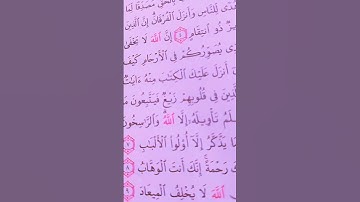 بِالْحَقِّ مُصَدِّقًا لِمَا
هُدًى لِلنَّاسِ وَأَنْزَلَ الْفُرْقَانَ إِنَّ الَّذِينَ
ذُو انْتِقَامٍ ٤ إِنَّ اللَّهَ لَا يَخْفَىٰ
يُصَوِّرُكُمْ فِي الْأَرْحَامِ كَيْفَ
أَنْزَلَ عَلَيْكَ الْكِتَابَ مِنْهُ آيَاتٌ
فِي قُلُوبِهِمْ زَيْغٌ فَيَتَّبِعُونَ مَا
تَأْوِيلَهُ إِلَّا اللَّهُ وَالرَّاسِخُونَ
يَذَّكَّرُ إِلَّا أُولُوا الْأَلْبَابِ ٧
رَحْمَةً إِنَّكَ أَنْتَ الْوَهَّابُ ٨
اللَّهَ لَا يُخْلِفُ الْمِيعَادَ ٩